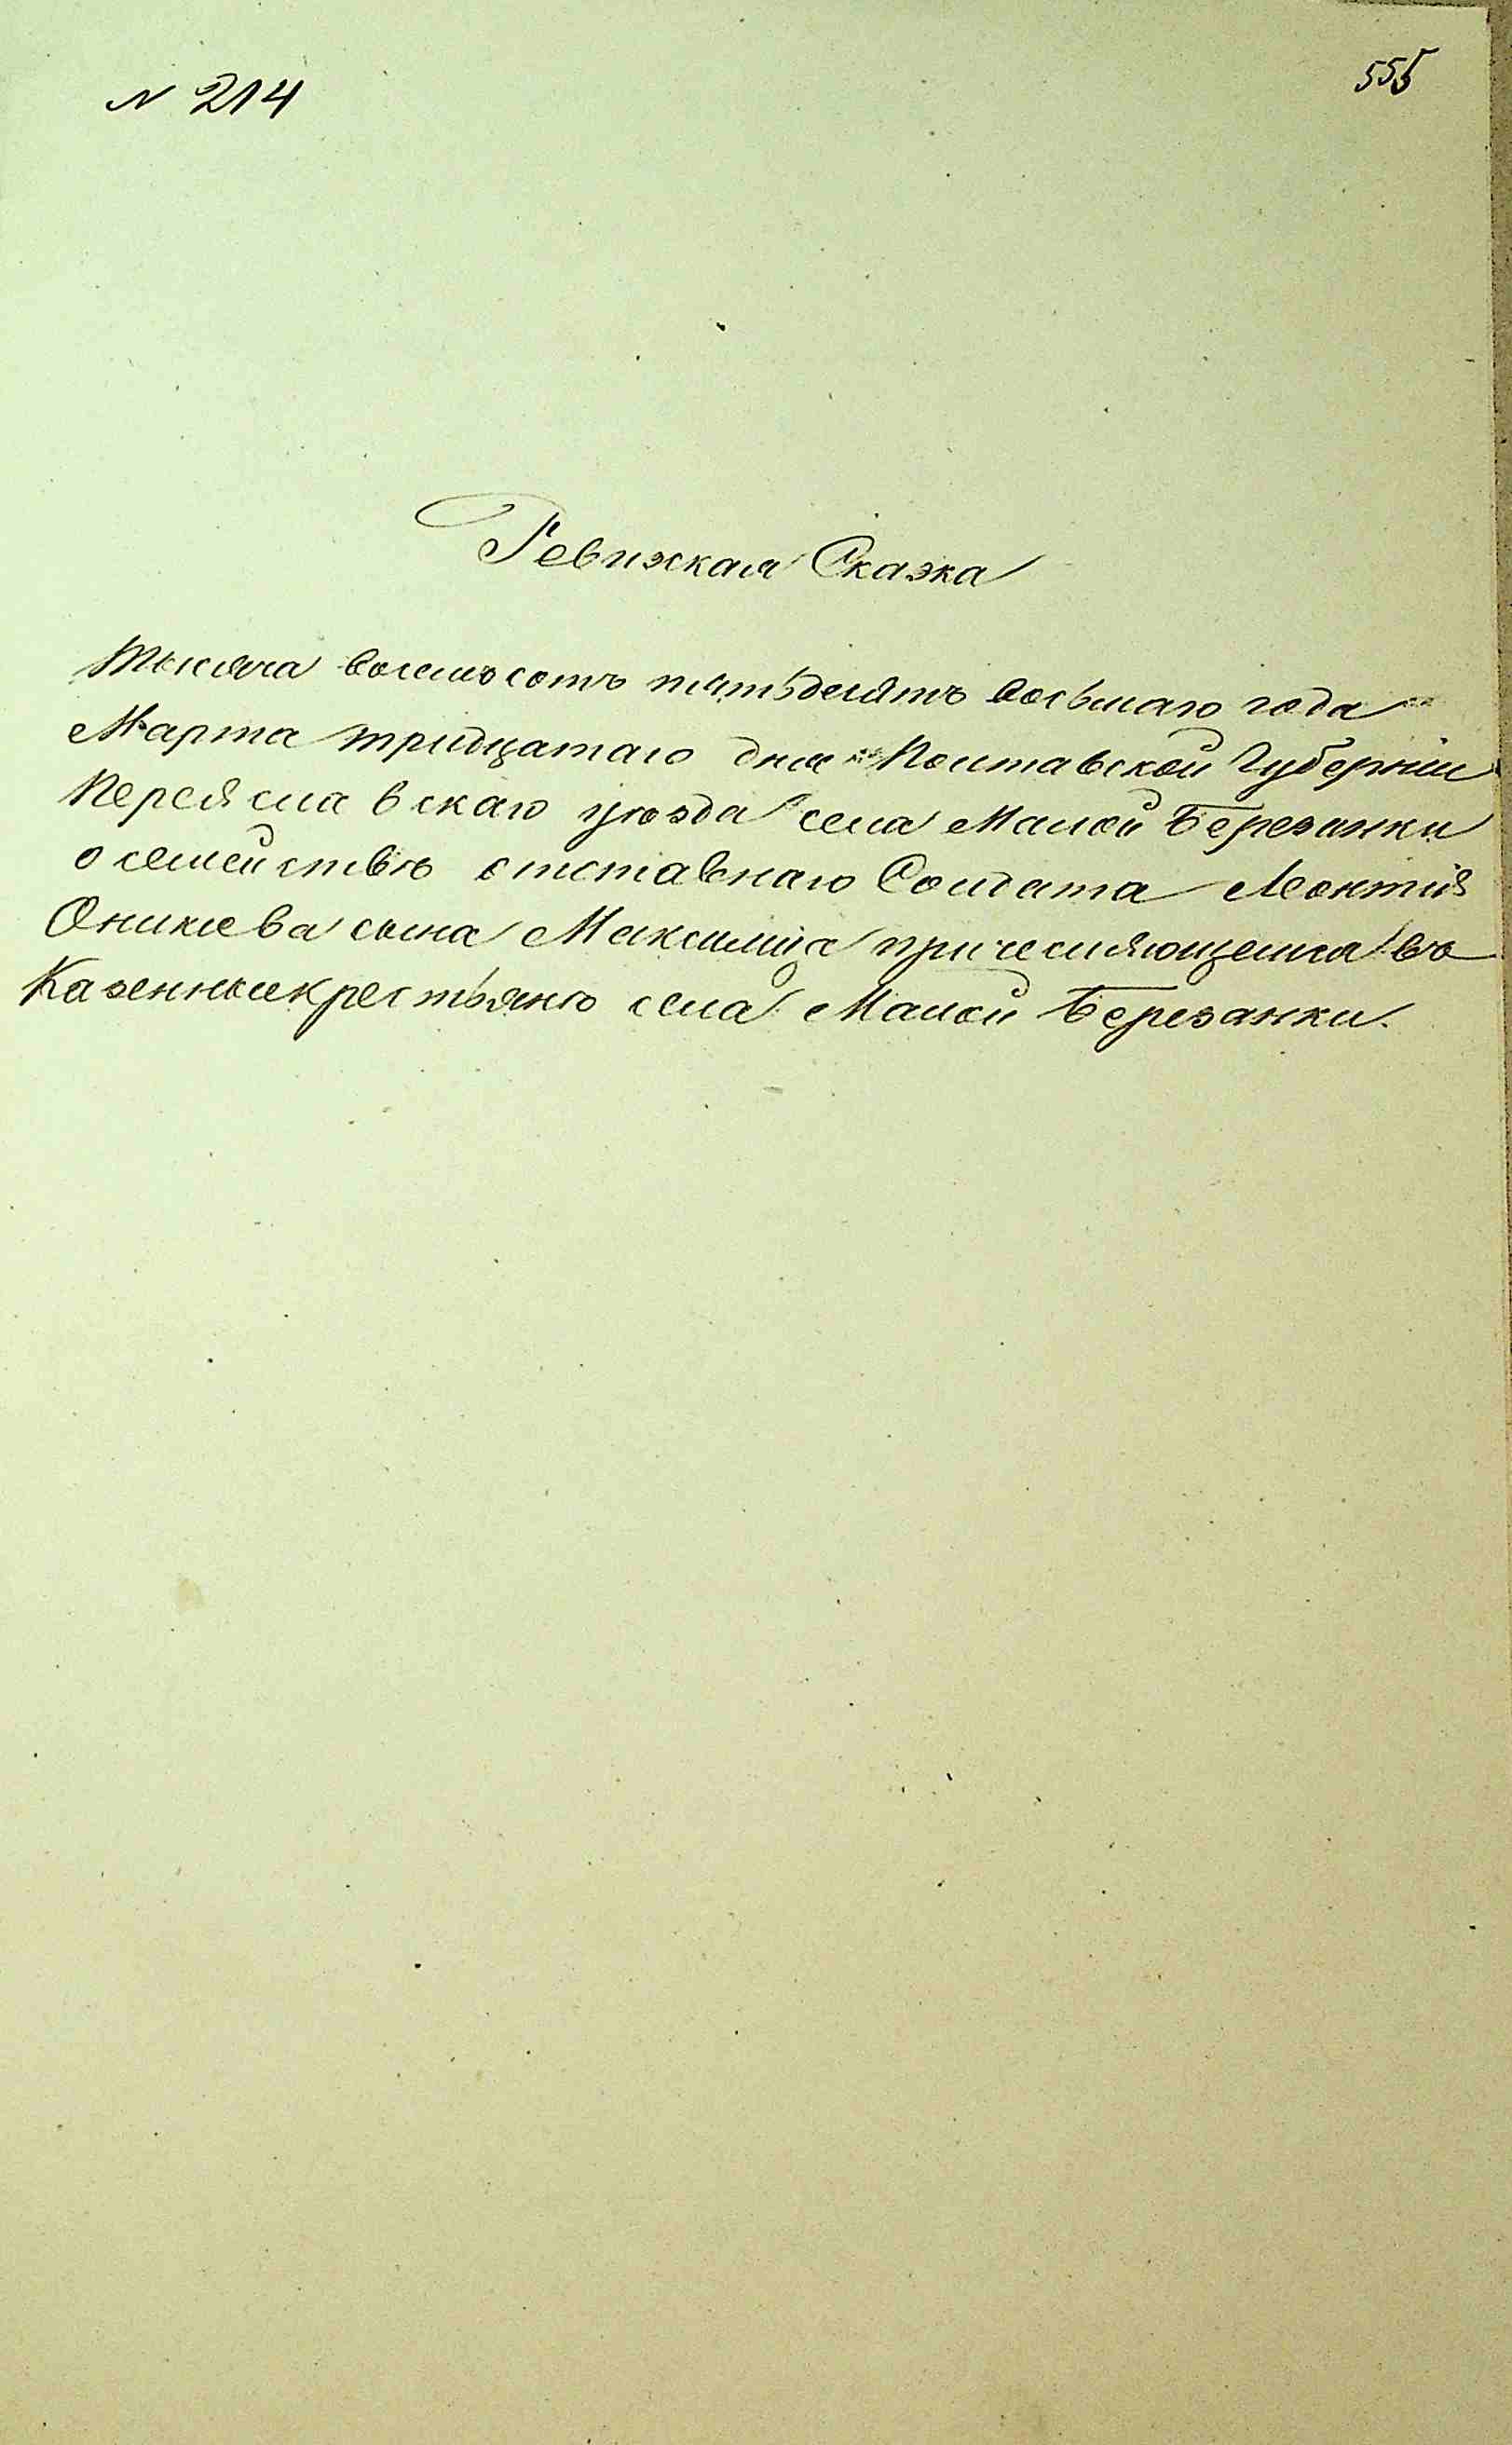 N 214
555
Ревижская Сказка
Тысяча восемьсотъ пятьдесятъ восьмаго года
Марта тридцатаго дня Полтавской Губерніи
Переяславскаго уѣзда села Малой Березанки
о семействѣ отставнаго Солдата Леонтія
Оникiева сына причесляющемся въ
Казенные крестьяне села Малой Березанки.